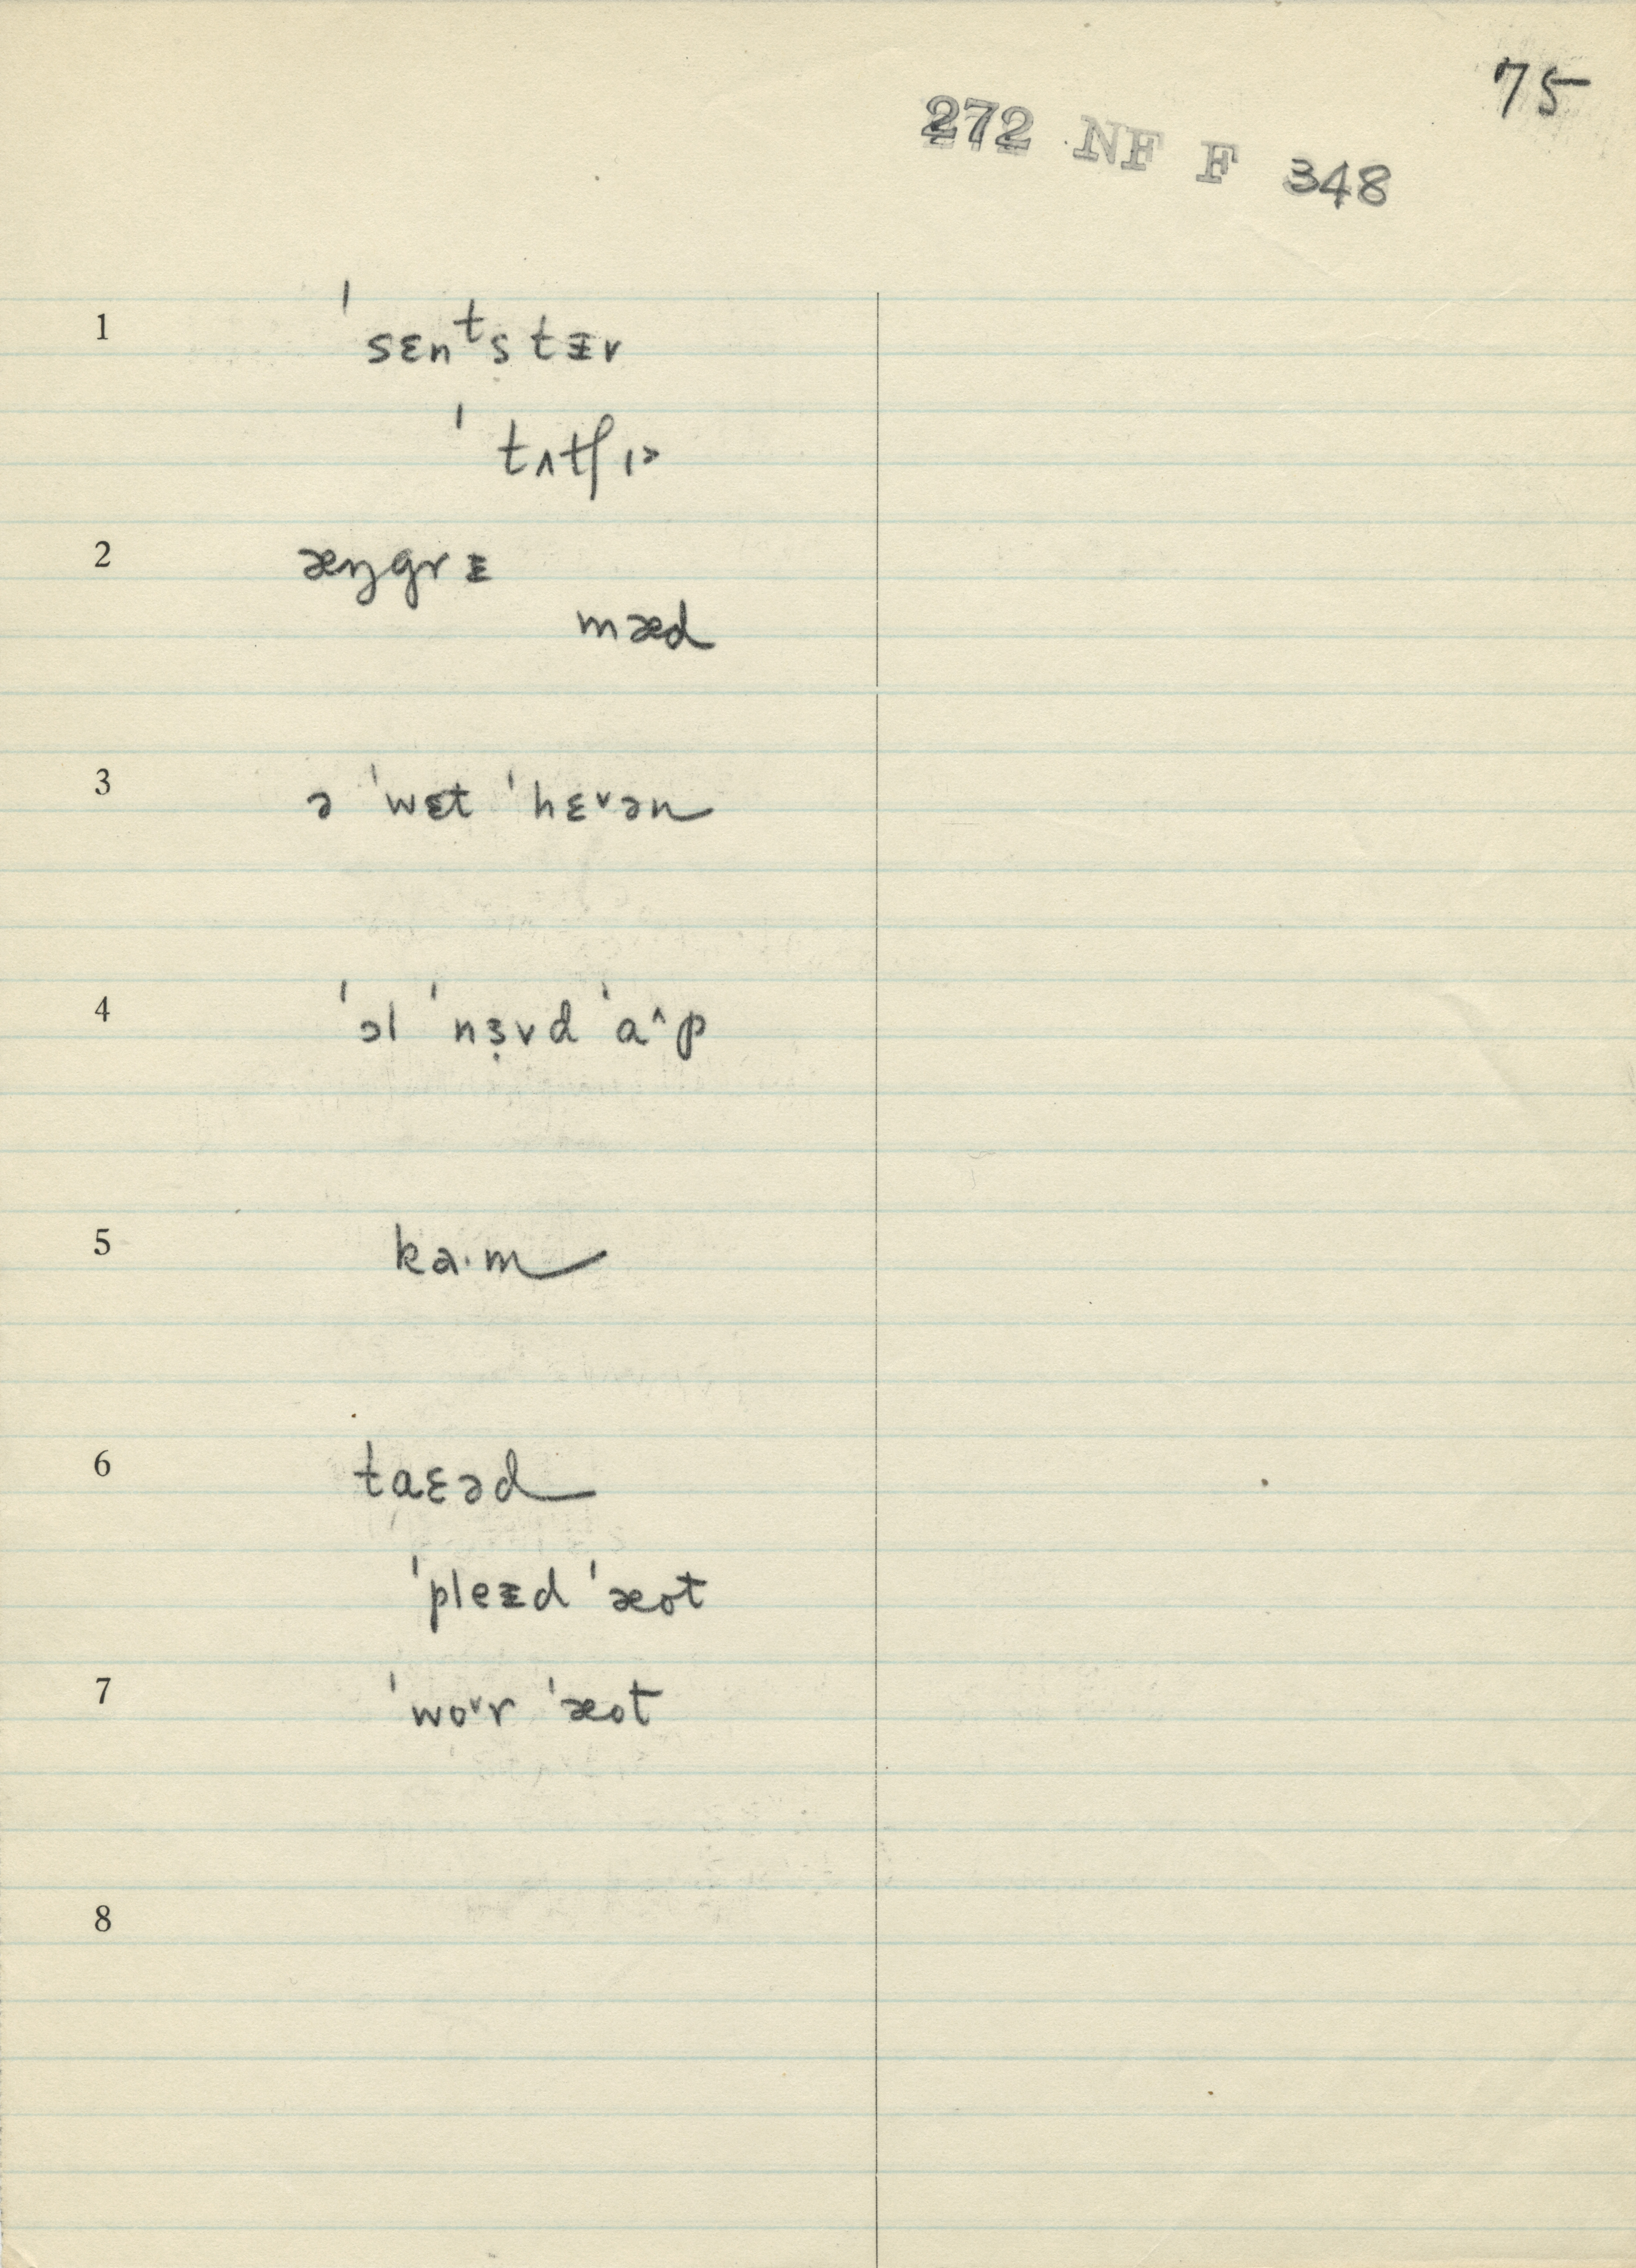 75
272 NF F 348
1 ˈsɛnᵗstᵻr
ˈtʌtʃɪ˃
2 æŋgrᵻ
mæd
3 ə ˈwɛt ˈhɛ˅ən
4 ˈɔl ˈnɜ̣vd ˈa^p
5 ka·m
6 taɛəd
ˈpleᵻd ˈæot
7 ˈwo˅r ˈæot
8